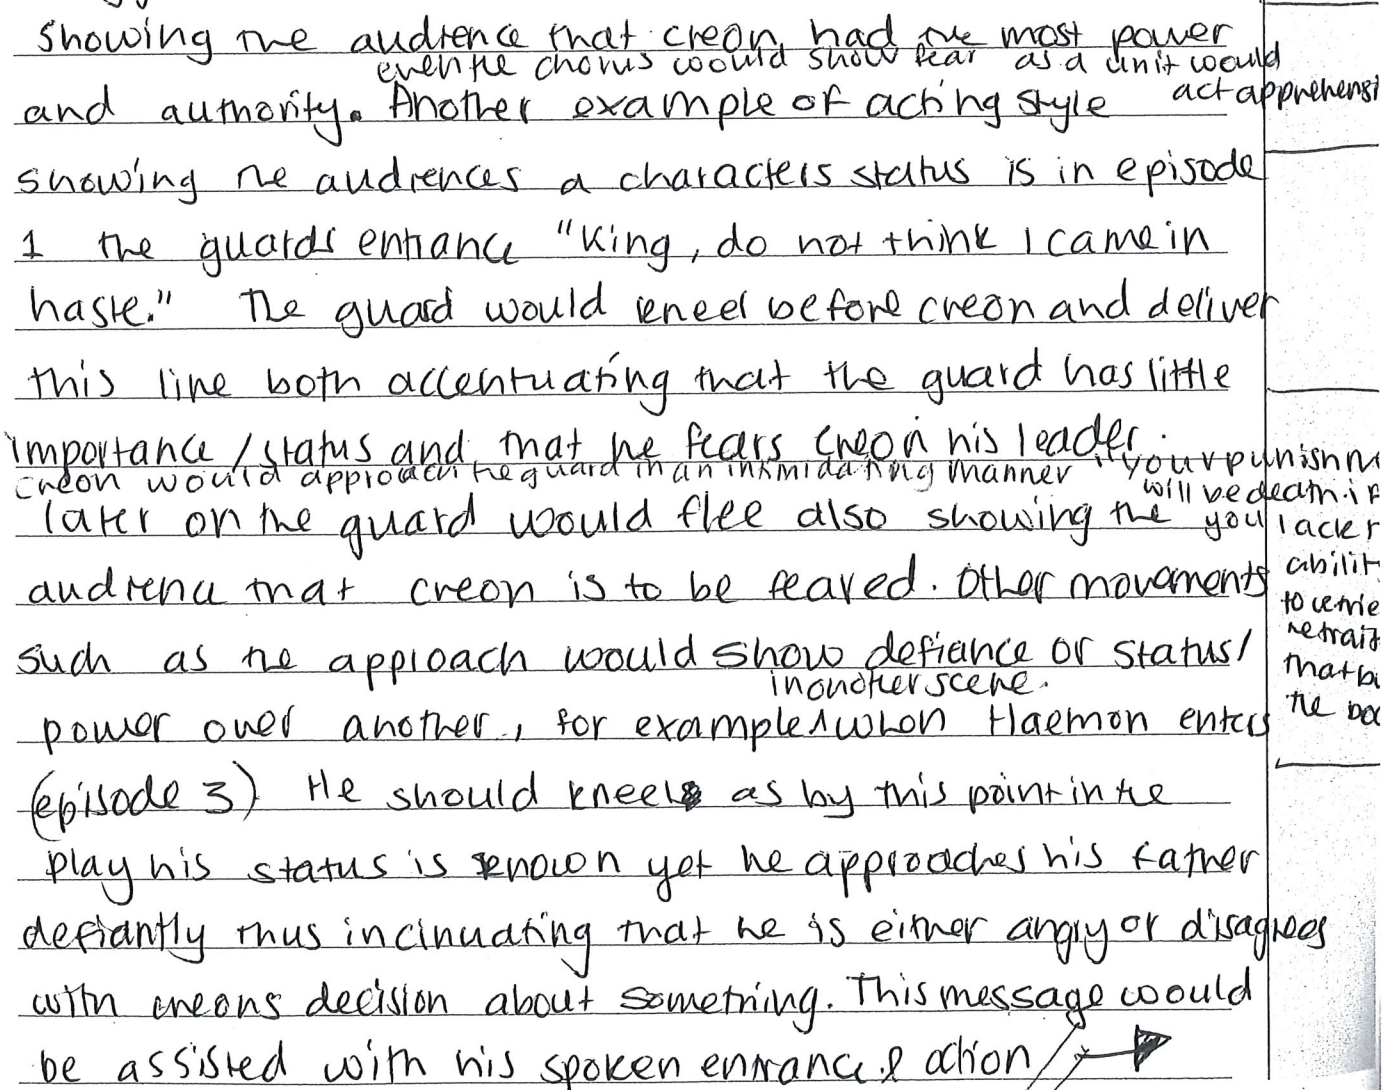 showing the audience that creon had the most power
even the chorus would show fear as a unit would
act apprehensi
and authority. Another example of acting style
showing the audiences a characters status is in episode
1 the guards entrance "King, do not think I came in
haste." The guard would kneel before creon and deliver
this line both accentuating that the guard has little
importance/status and that he fears Creon his leader.
creon would approach the guard in an intimidating manner "your punishm
will be death if
you lack r
abilit
to retrie
retrait
that bi
the bo
later on the guard would flee also showing the
audience that creon is to be feared. Other movements
such as the approach would show defiance or status/
in another scene.
power over another, for example ^ when Haemon enters
(episode 3) He should kneel as by this point in the
play his status is known yet he approaches his father
defiantly thus incinuating that he is either angry or disagrees
with creons decision about something. This message would
be assisted with his spoken entrance & action